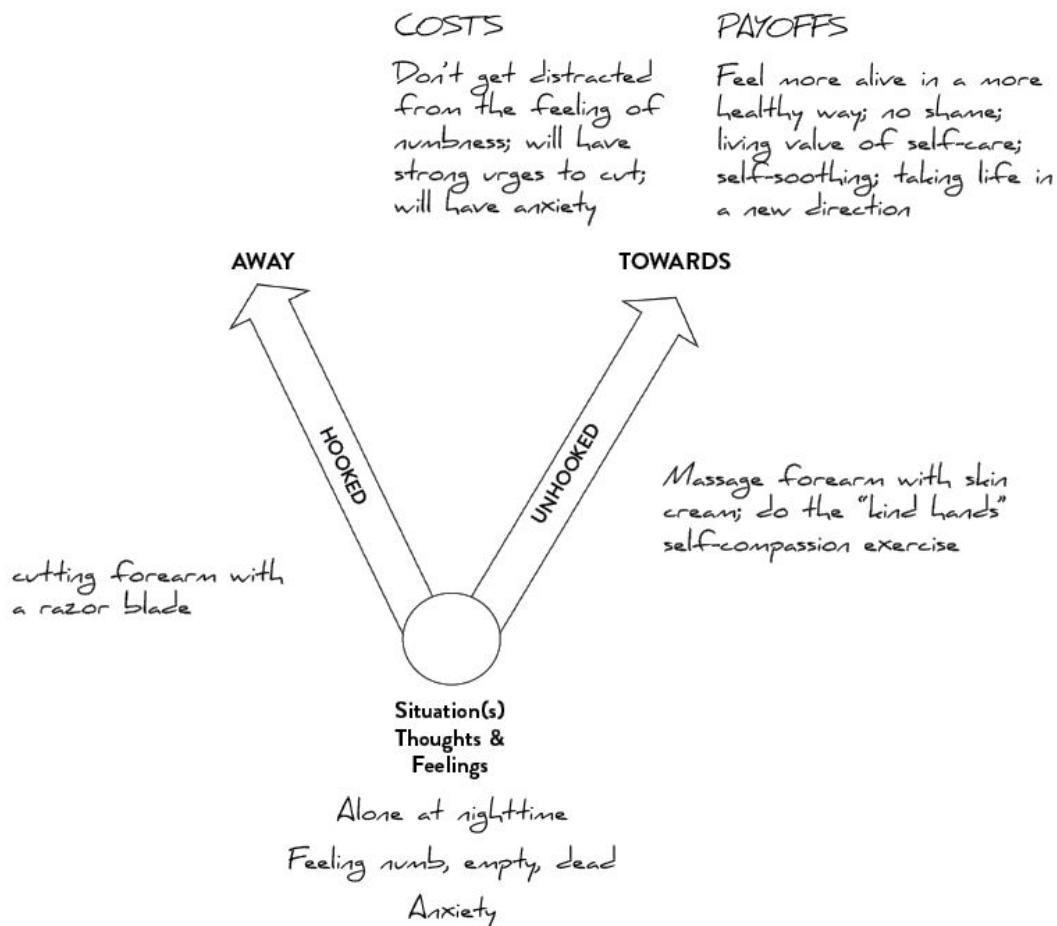 COSTS
Don't get distracted
from the feeling of
numbness; will have
strong urges to cut;
will have anxiety
PAYOFFS
Feel more alive in a more
healthy way; no shame;
living value of self-care;
self-soothing; taking life in
a new direction
AWAY
TOWARDS
HOOKED
UNHOOKED
Massage forearm with skin
cream; do the "kind hands"
self-compassion exercise
cutting forearm with
a razor blade
Situation(s)
Thoughts &
Feelings
Alone at nighttime
Feeling numb, empty, dead
Anxiety